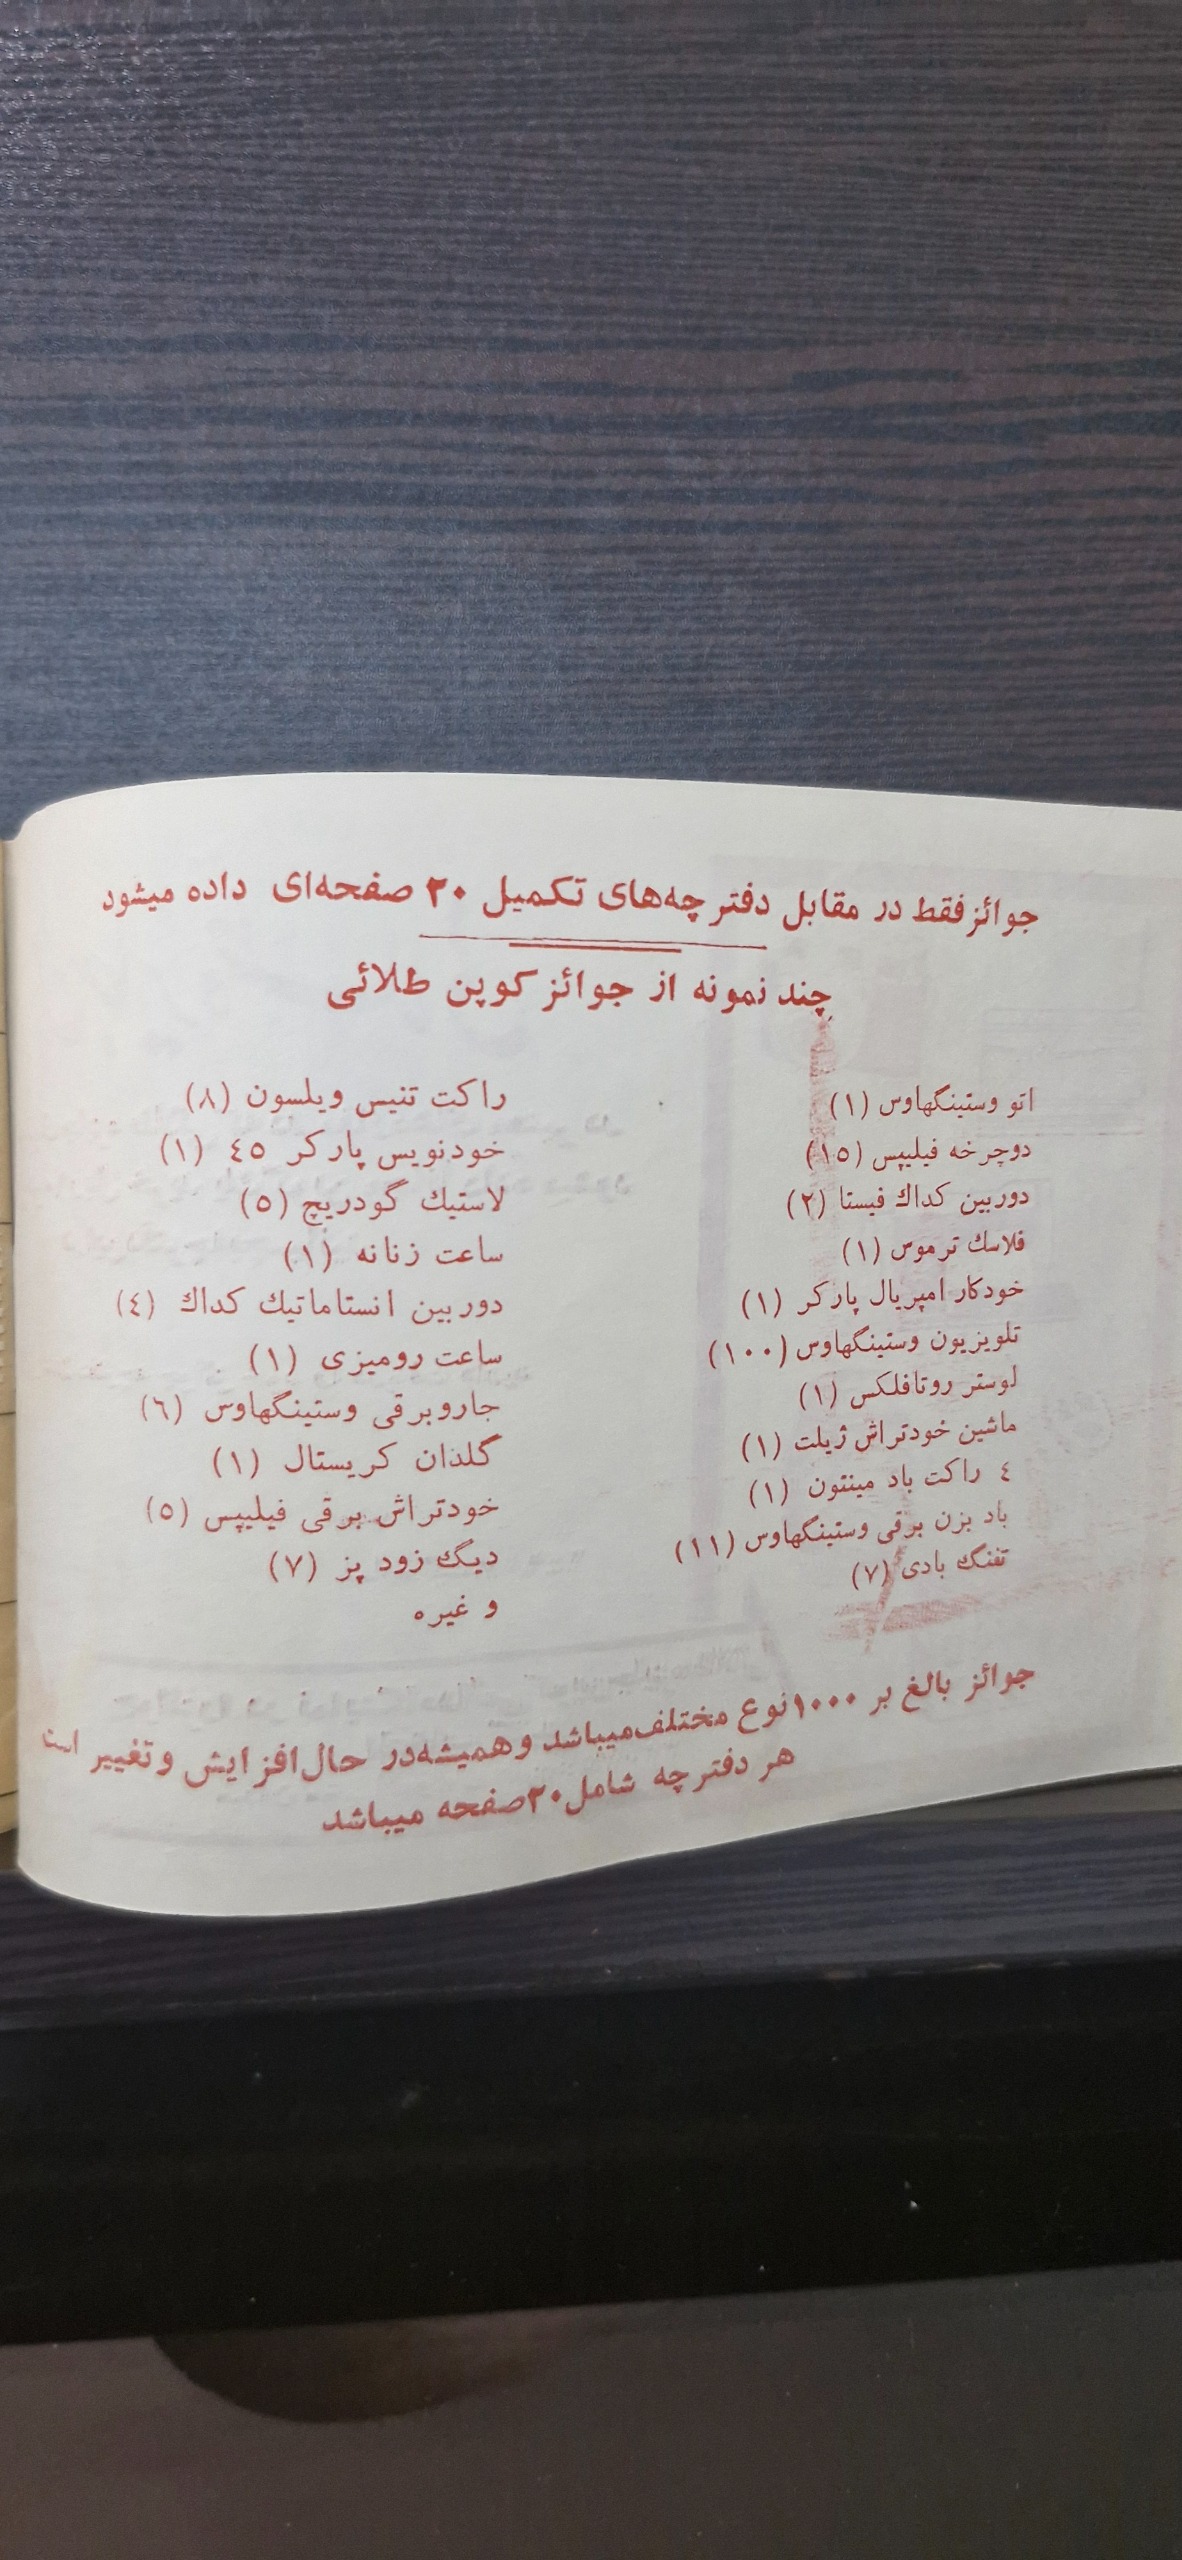 جوائز فقط در مقابل دفترچه‌های تکمیل ۳۰ صفحه‌ای داده میشود
چند نمونه از جوائز کوپن طلائی
اتو وستینگهاوس (۱)
دوچرخه فیلیپس (۱۵)
دوربین کداك فیستا (۲)
فلاسك ترموس (۱)
خودکار امپریال پارکر (۱)
تلویزیون وستینگهاوس (۱۰۰)
لوستر روتافلکس (۱)
ماشین خودتراش ژیلت (۱)
٤ راکت باد مینتون (۱)
باد بزن برقی وستینگهاوس (۱۱)
تفنگ بادی (۷)
راکت تنیس ویلسون (۸)
خودنویس پارکر ٤٥ (۱)
لاستیك گودریچ (٥)
ساعت زنانه (۱)
دوربین انستاماتیك کداك (٤)
ساعت رومیزی (۱)
جاروبرقی وستینگهاوس (٦)
گلدان کریستال (۱)
خودتراش برقی فیلیپس (٥)
دیگ زود پز (۷)
و غیره
جوائز بالغ بر ۱۰۰۰ نوع مختلف میباشد و همیشه در حال افزایش و تغییر است
هر دفترچه شامل ۳۰ صفحه میباشد